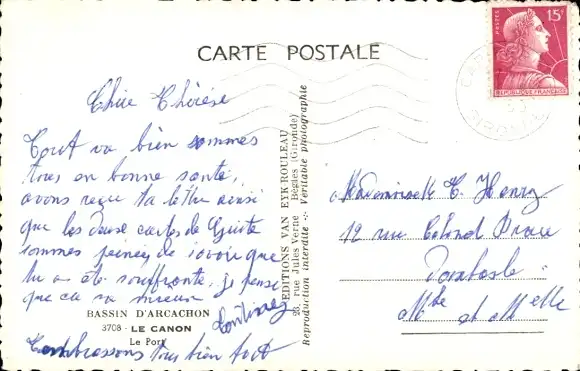 CARTE POSTALE
POSTES 15F
REPUBLIQUE FRANÇAISE
GIRONDE
Chère Thérèse
Tout va bien sommes
tous en bonne santé,
avons reçu ta lettre ainsi
que les deux cartes de
sommes peinés de savoir que
tu a été souffrante, je pense
que ca va mieux
BASSIN D'ARCACHON
3708 - LE CANON
Le Port
tous bien fort
EDITIONS VAN EYK-ROULEAU
28, rue Jules Verne Bègles (Gironde)
Reproduction interdite -:- Véritable photographie
Mademoiselle T. Henry
12 rue Colonel
Mr et Melle